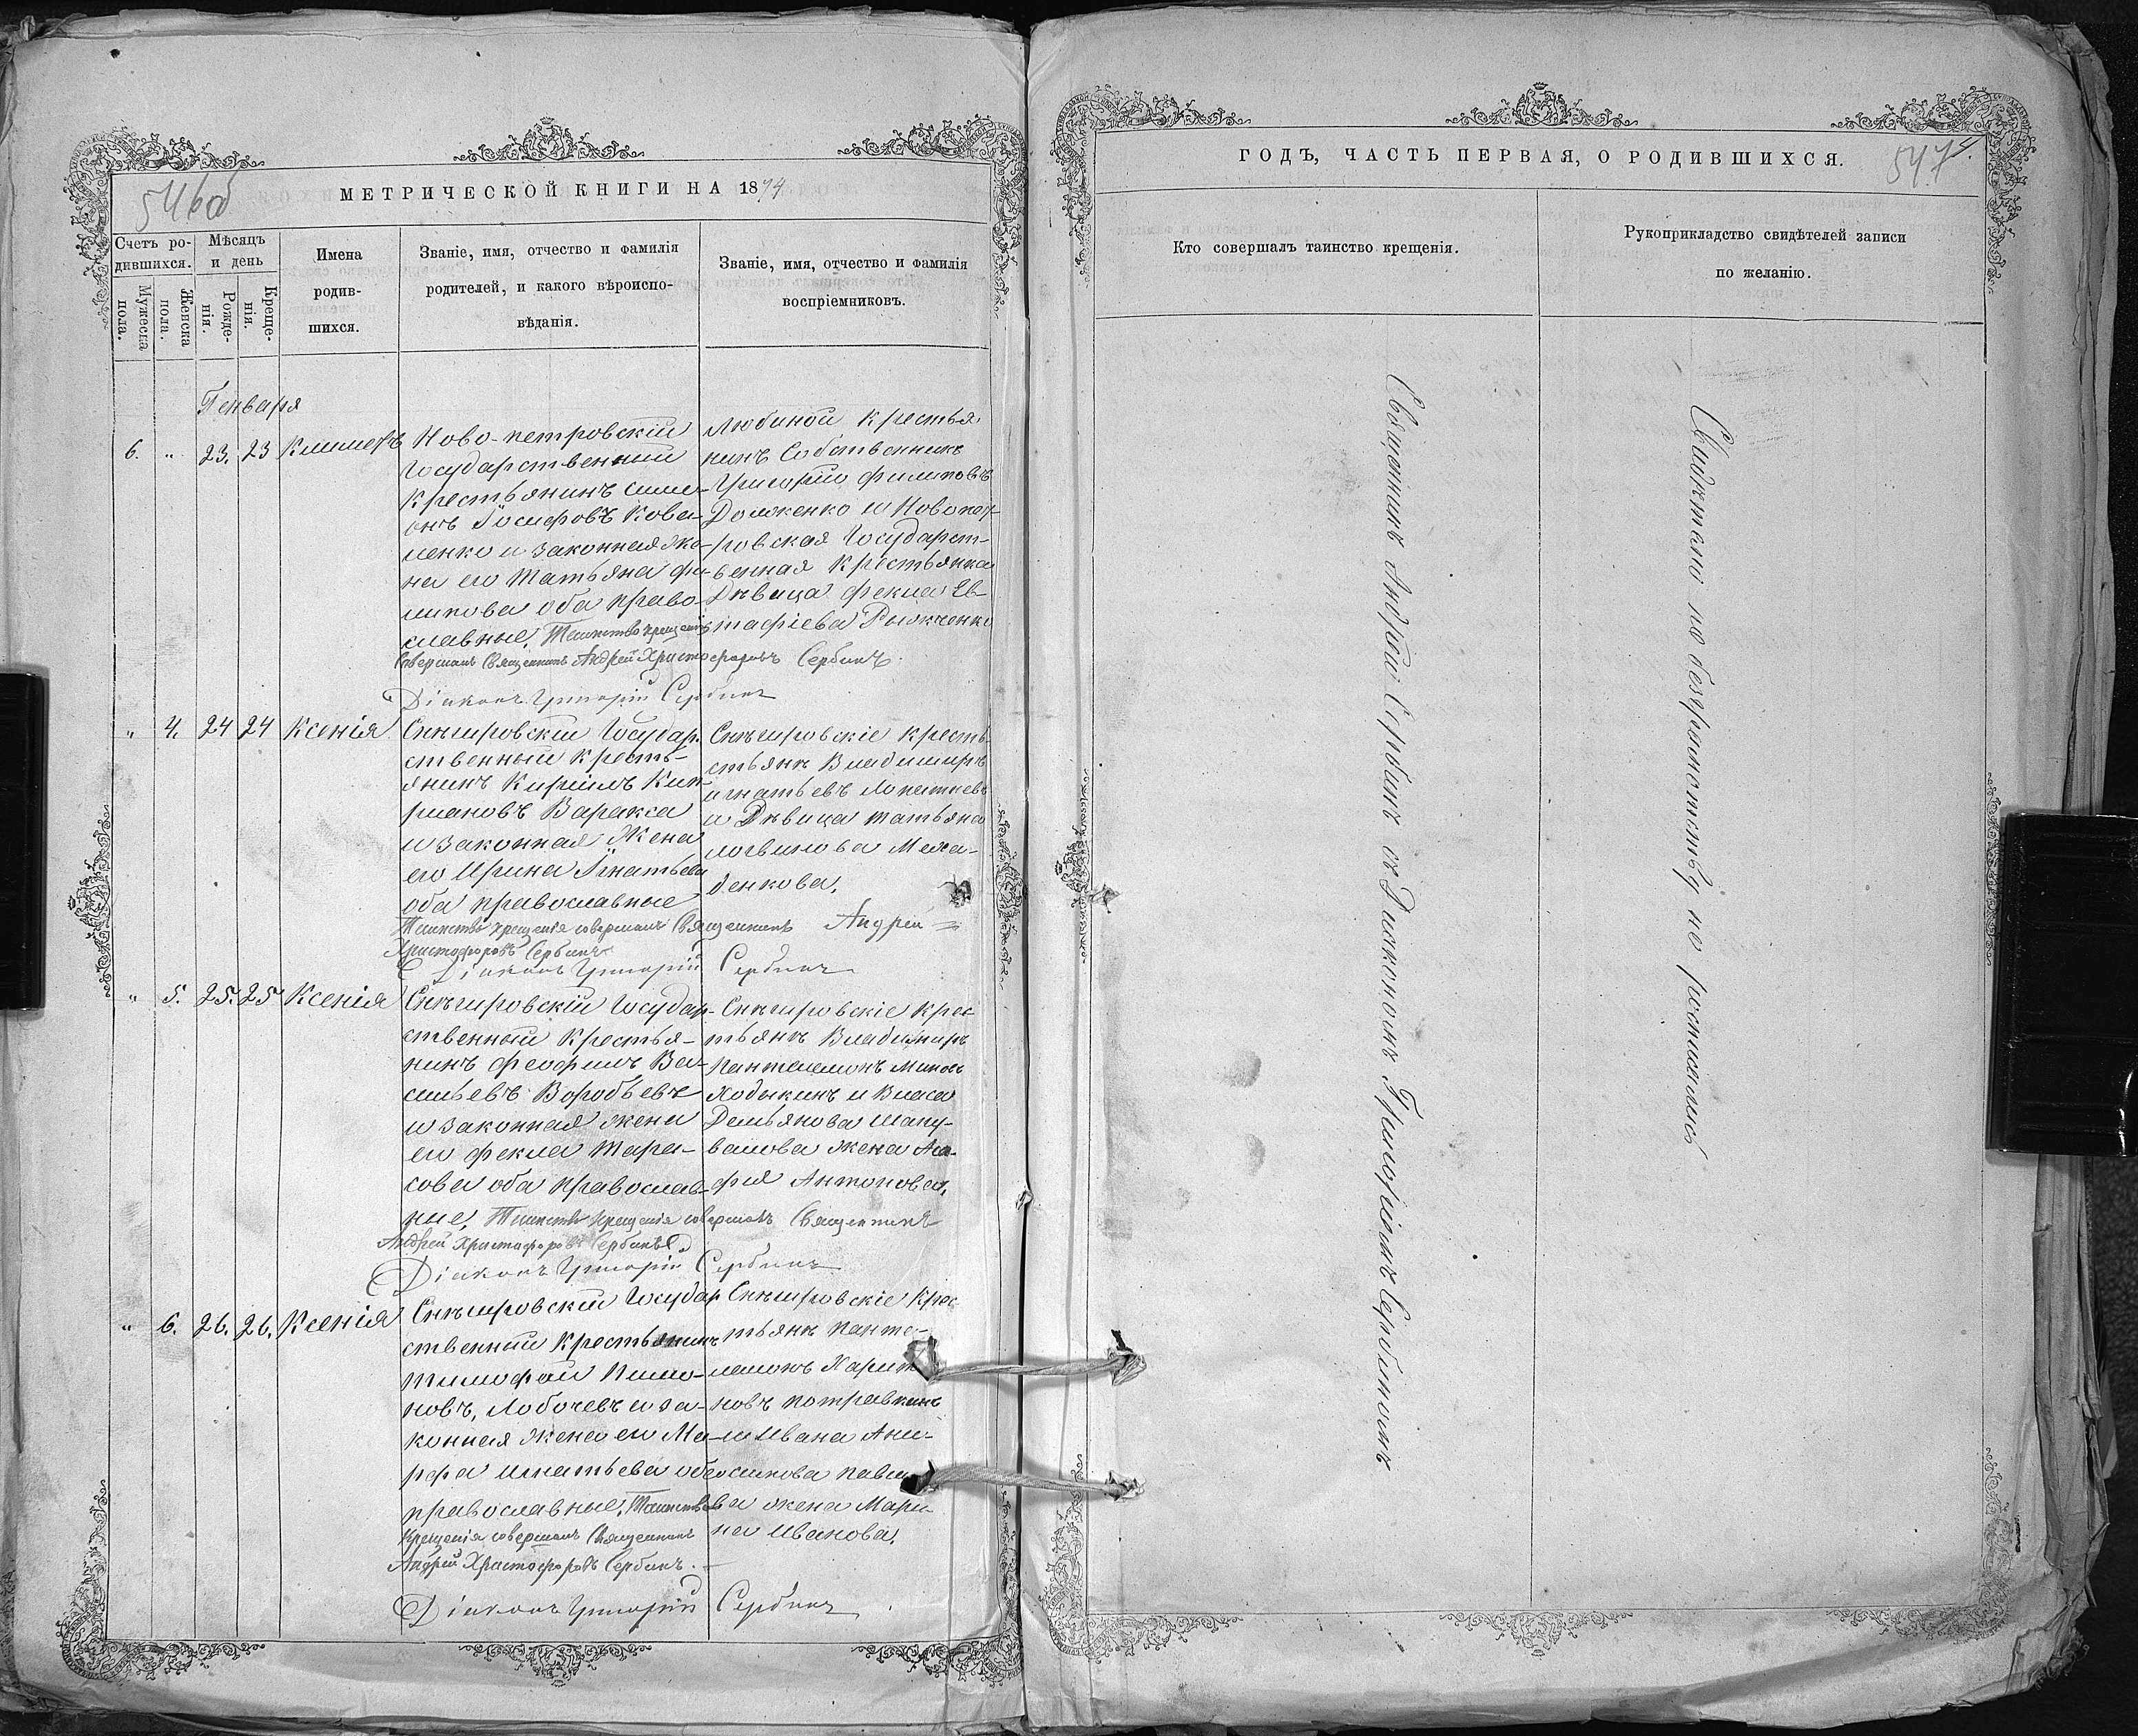 546об
МЕТРИЧЕСКОЙ КНИГИ НА 1874
Счетъ ро-
дившихся.
Мужеска
пола.
Женска
пола.
Мѣсяцъ
и день
Рожде-
нія.
Креще-
нія.
Имена
родив-
шихся.
Званіе, имя, отчество и фамилія
родителей, и какого вѣроиспо-
вѣданія.
Званіе, имя, отчество и фамилія
воспріемниковъ.
Генваря
6. " 23. 23 Климентъ
Ново-петровскій
Государственный
Крестьянинъ Симе-
онъ Іосифовъ Кова-
ленко и законная же-
на его Татьяна Фи-
липова оба право-
славные. Таинство крещенія
Совершалъ Священникъ Андрей Христофоровъ Сербинъ.
Діаконъ Григорій Сербинъ
крестья-
нинъ Собственникъ
Григорій Филиповъ
Долженко и Новопет-
ровская Государст-
венная Крестьянка
Дѣвица Фекла Ев-
тафіева
" 4. 24 24 Ксенія
Снѣгировскій Государ-
ственный кресть-
янинъ Кирилъ Кип-
риановъВаракса
и законная Жена
его Ирина Игнатьева
оба православные
Таинство крещенія совершалъ Священникъ Андрей
Христофоровъ Сербинъ
Діаконъ Григорій Сербинъ
Снѣгировскіе кресть
стьянъ Владимиръ
Игнатьевъ
и Дѣвица татьяна
логвинова
денкова.
" 5. 25. 25 Ксенія
Снѣгировскій Государ-
ственный Крестья-
нинъ Феофилъ Ва-
сильевъ Воробьевъ
и законная жена
его Фекла Тара-
сова оба православ-
ные. Таинство крещенія совершалъ Священникъ
Андрей Христофоровъ Сербинъ
Діаконъ Григорій Сербинъ
Снѣгировскіе Крес
тьянъ Владимиръ
Пантелемонъ
Ходыкинъ и Власа
Демьянова Шапу-
валова жена Ага-
фия Антонова.
" 6. 26. 26. Ксенія
Снѣгировскій Государ
ственный Крестьянинъ
Тимофей
новъ, Лобачевъ и за-
конная жена его Ма-
рфа Игнатьева оба
православные. Таинство
Крещенія совершалъ Священникъ
Андрей Христофоровъ Сербинъ.
Діаконъ Григорій Сербинъ
Снѣгировскіе Крес
тьянъ Панте-
лемонъ Харито
новъ Потравкинъ
и Ивана Ани-
симова
ва жена Мари-
на Иванова.
547
ГОДЪ, ЧАСТЬ ПЕРВАЯ, О РОДИВШИХСЯ.
Кто совершалъ таинство крещенія.
Рукоприкладство свидѣтелей записи
по желанію.
Священникъ Андрей Сербинъ съ Діакономъ Григоріемъ Сербиномъ
Свидѣтели по безграмотству не росписались